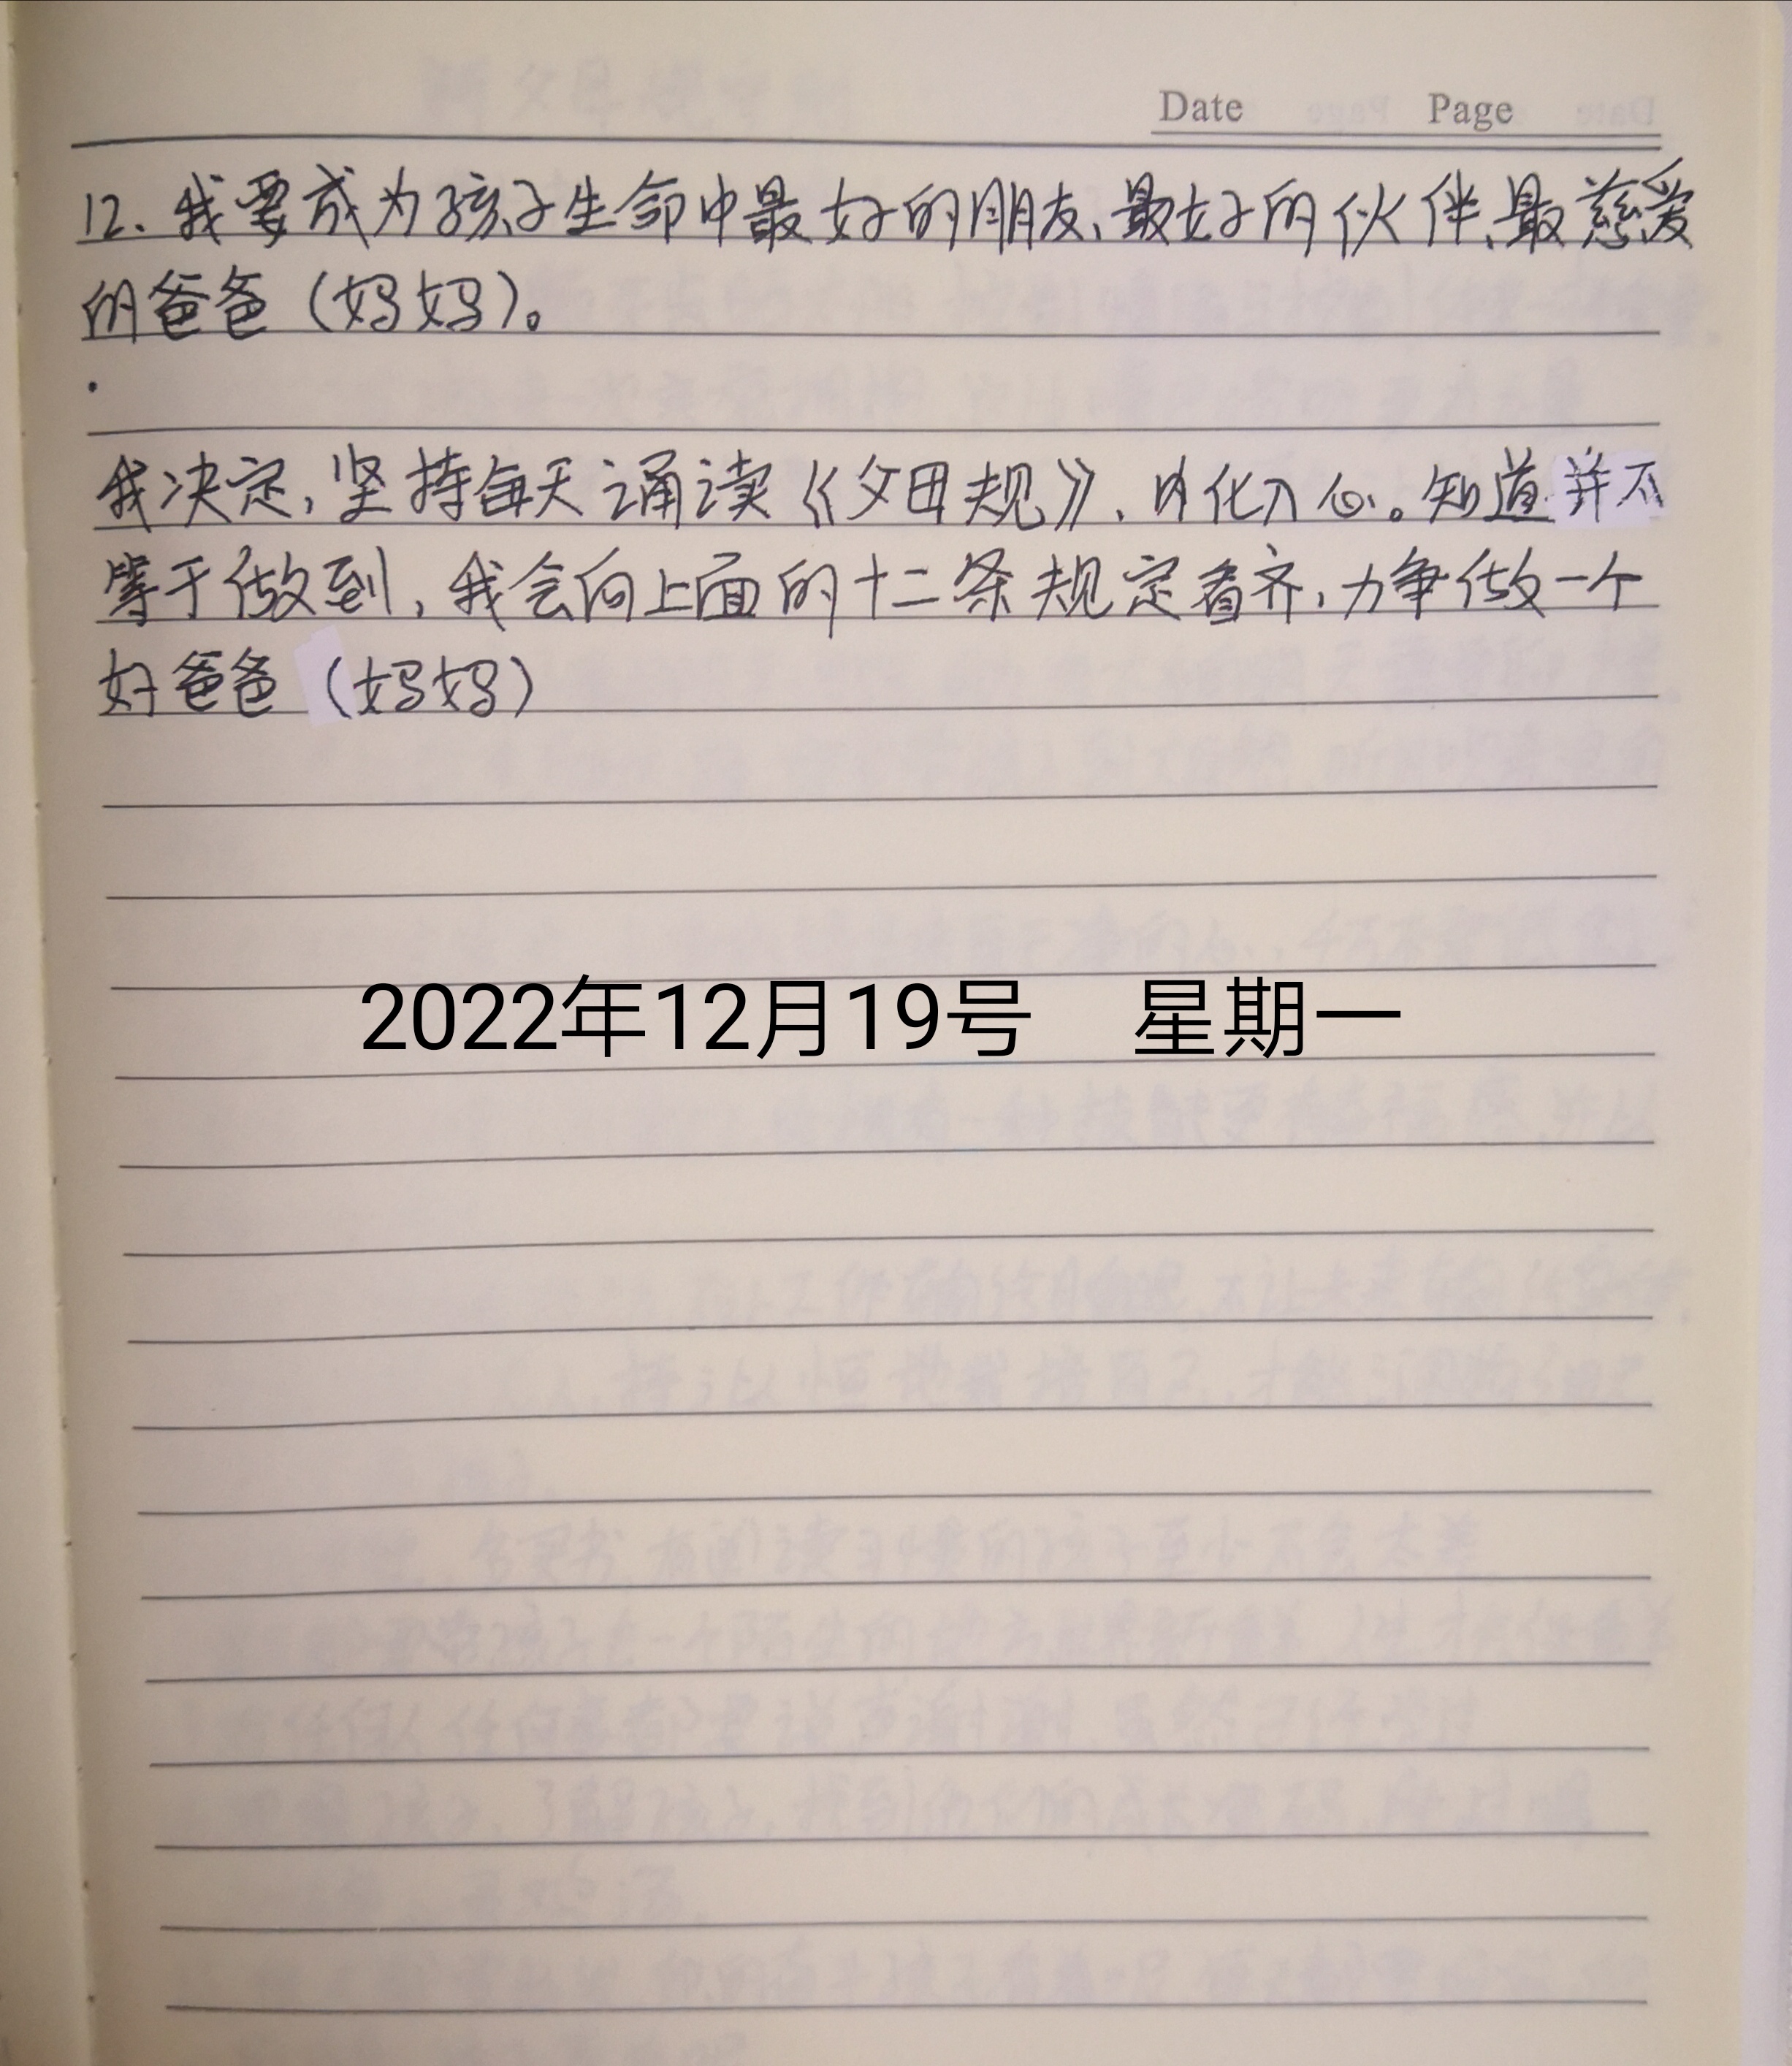 Date Page
12. 我要成为孩子生命中最好的朋友、最好的伙伴、最慈爱
的爸爸（妈妈）。
我决定，坚持每天诵读《父母规》、内化入心。知道并不
等于做到，我会向上面的十二条规定看齐，力争做一个
好爸爸（妈妈）
2022年12月19号 星期一